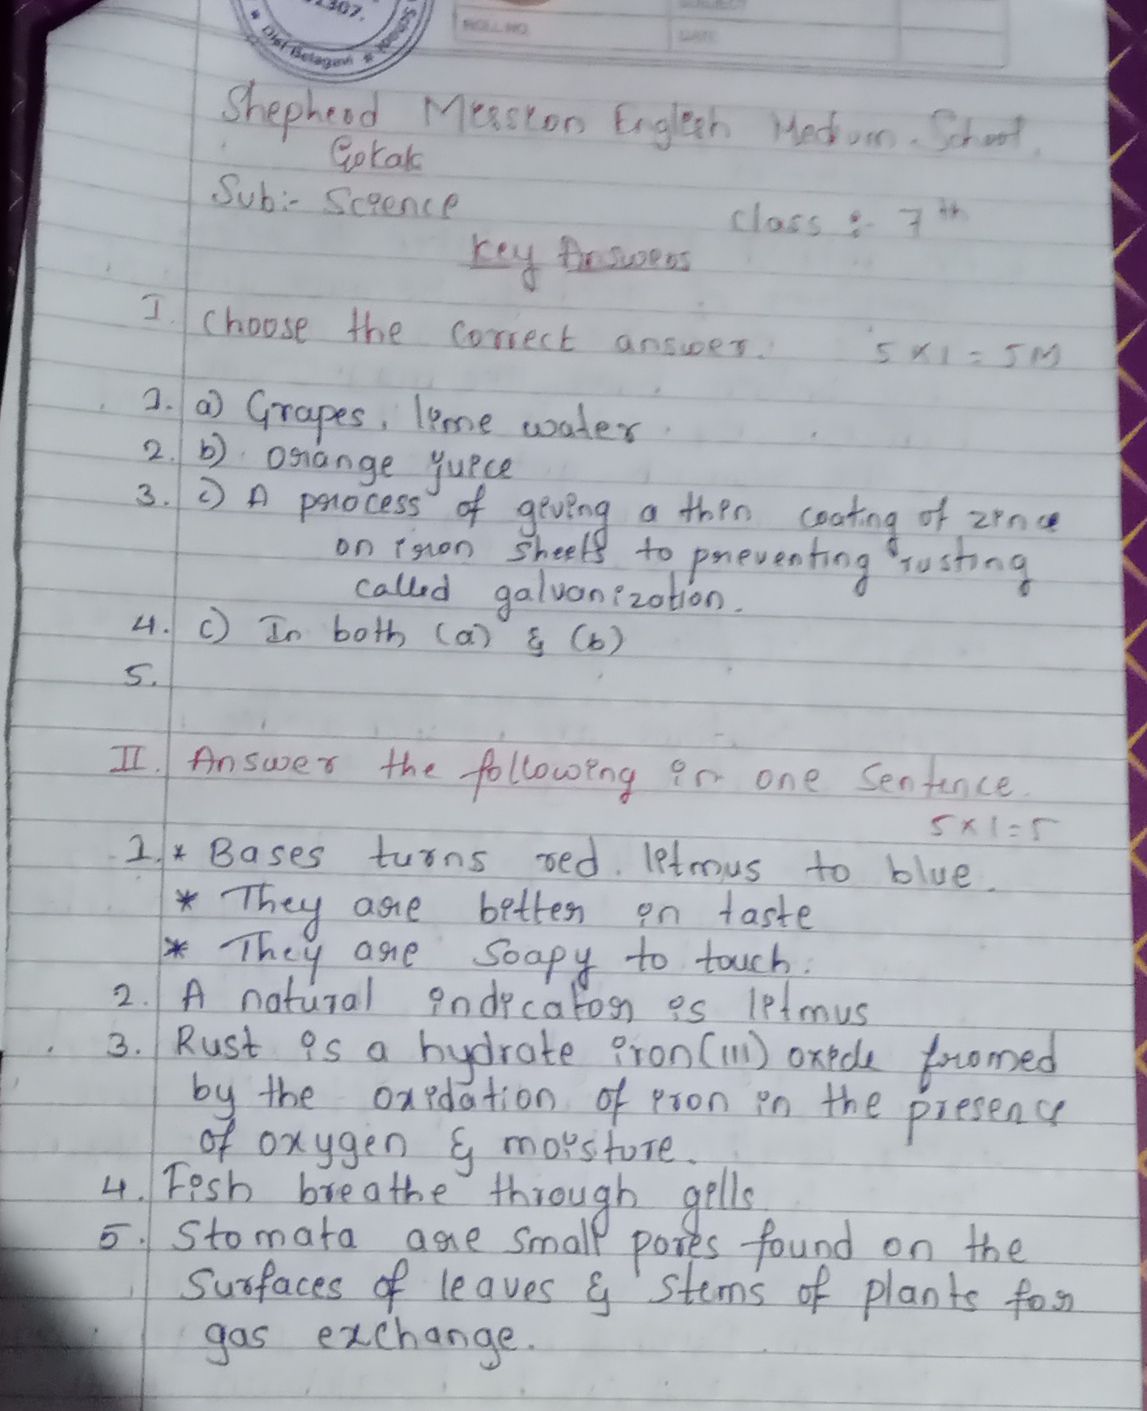 1307.
* Dist Belagavi * School
ROLL NO.
DATE
Shepherd Mission English Medium. School.
Gokak
Sub:- Science
Class :- 7th
Key Answers
I. Choose the correct answer. 5 x 1 = 5M
1. a) Grapes, lime water.
2. b). orange yuice
3. c) A process of giving a thin coating of zinc
on iron sheets to preventing rusting
called galvanization.
4. c) In both (a) & (b)
5.
II. Answer the following in one Sentence.
5 x 1 = 5
1. * Bases turns red. litmus to blue.
* They are bitter in taste
* They are soapy to touch.
2. A natural indicator is litmus
3. Rust is a hydrate iron(III) oxide fromed
by the oxidation of iron in the presence
of oxygen & moisture.
4. Fish breathe through gills.
5. Stomata are small pores found on the
Surfaces of leaves & stems of plants for
gas exchange.